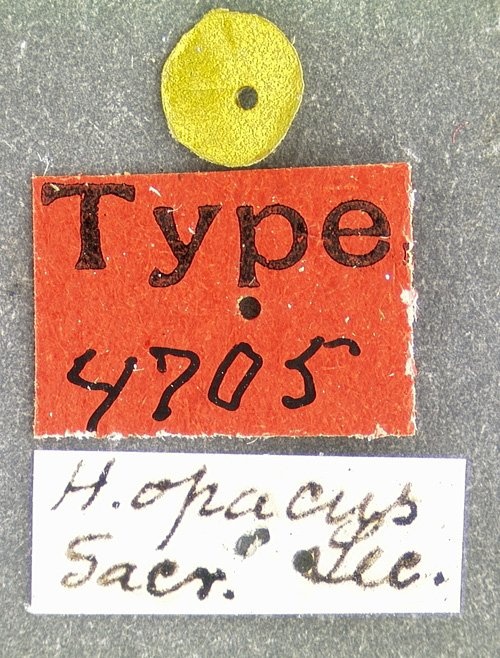 Type
4705
H. opacus
Sacr. Lec.